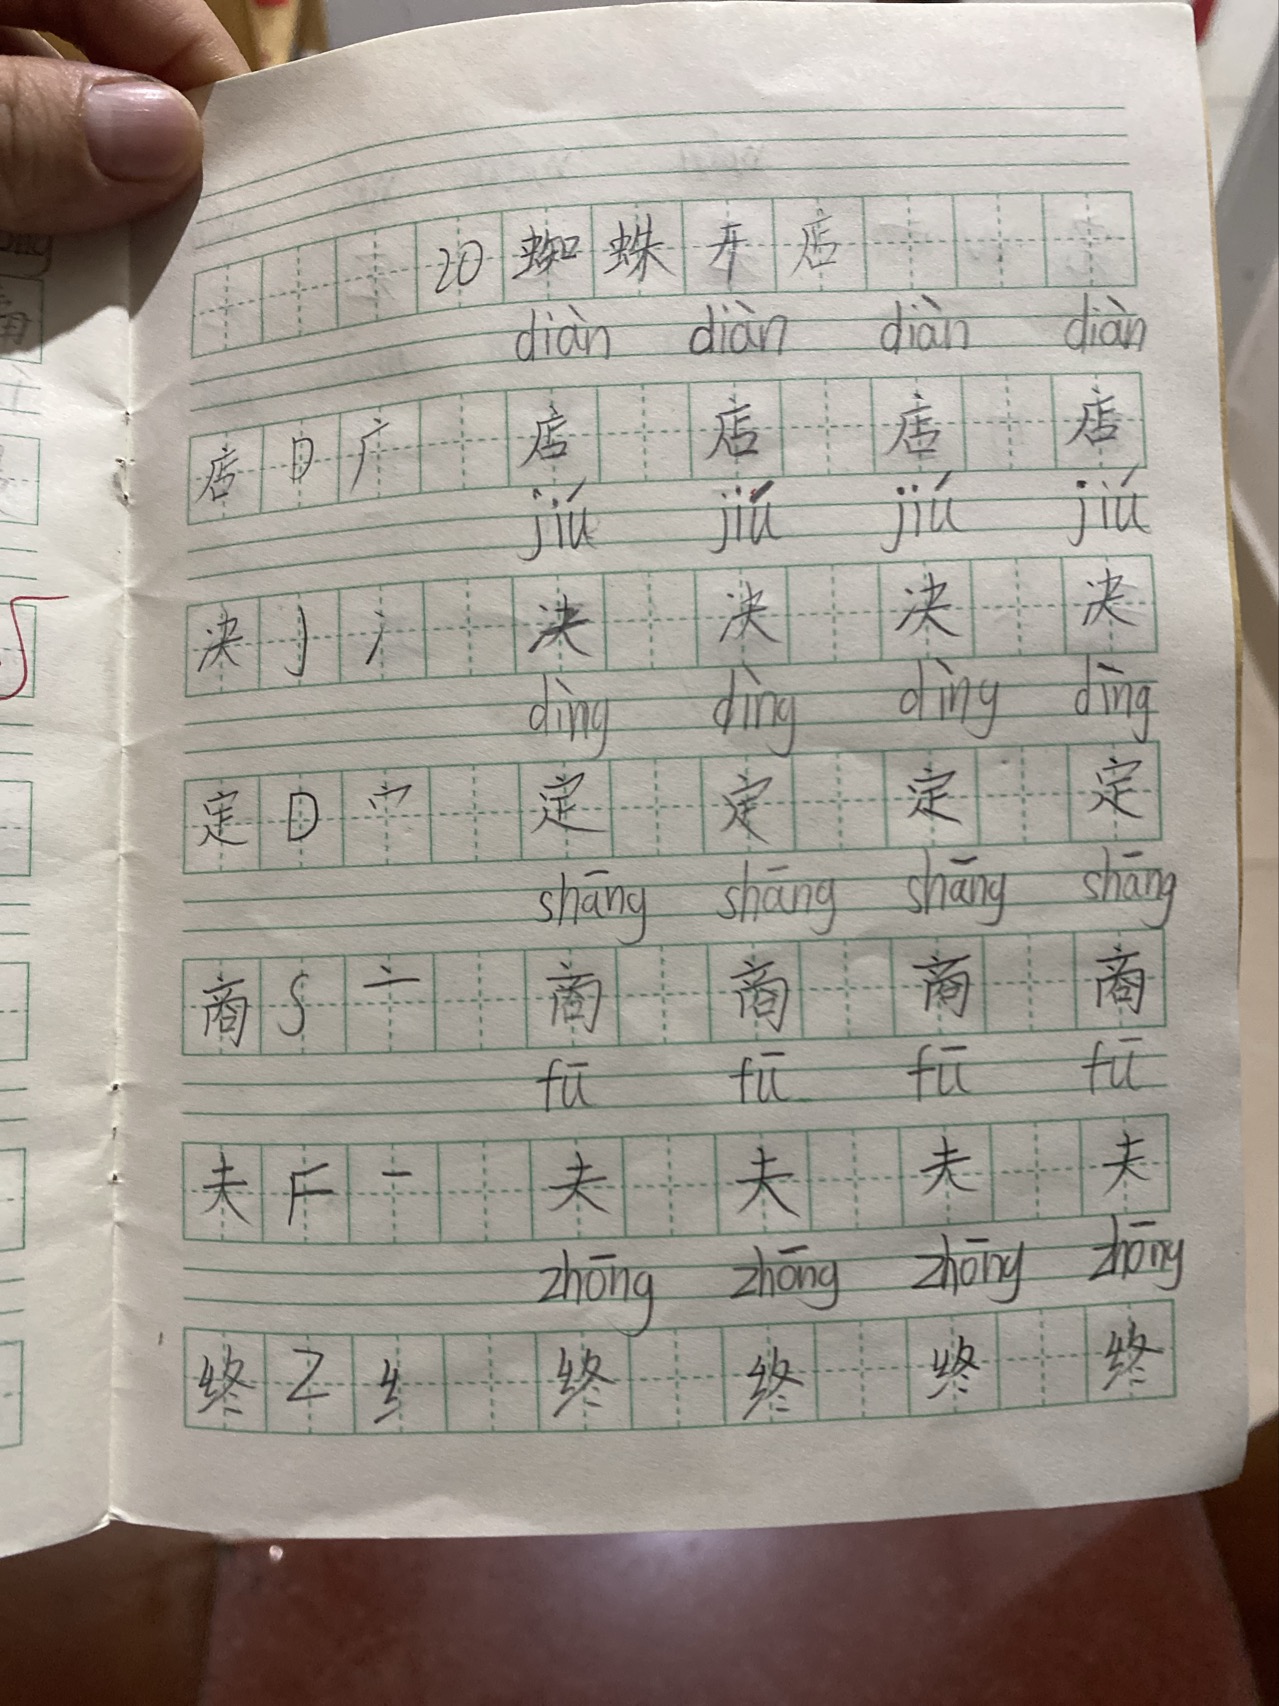 20 蜘蛛开店
diàn diàn diàn diàn
店 D 广 店 店 店 店
jiú jiú jiú jiú
决 J 冫 决 决 决 决
dìng dìng dìng dīng
定 D 宀 定 定 定 定
shāng shāng shāng shāng
商 S 亠 商 商 商 商
fū fū fū fū
夫 F 一 夫 夫 夫 夫
zhōng zhōng zhōng zhōng
终 Z 纟 终 终 终 终